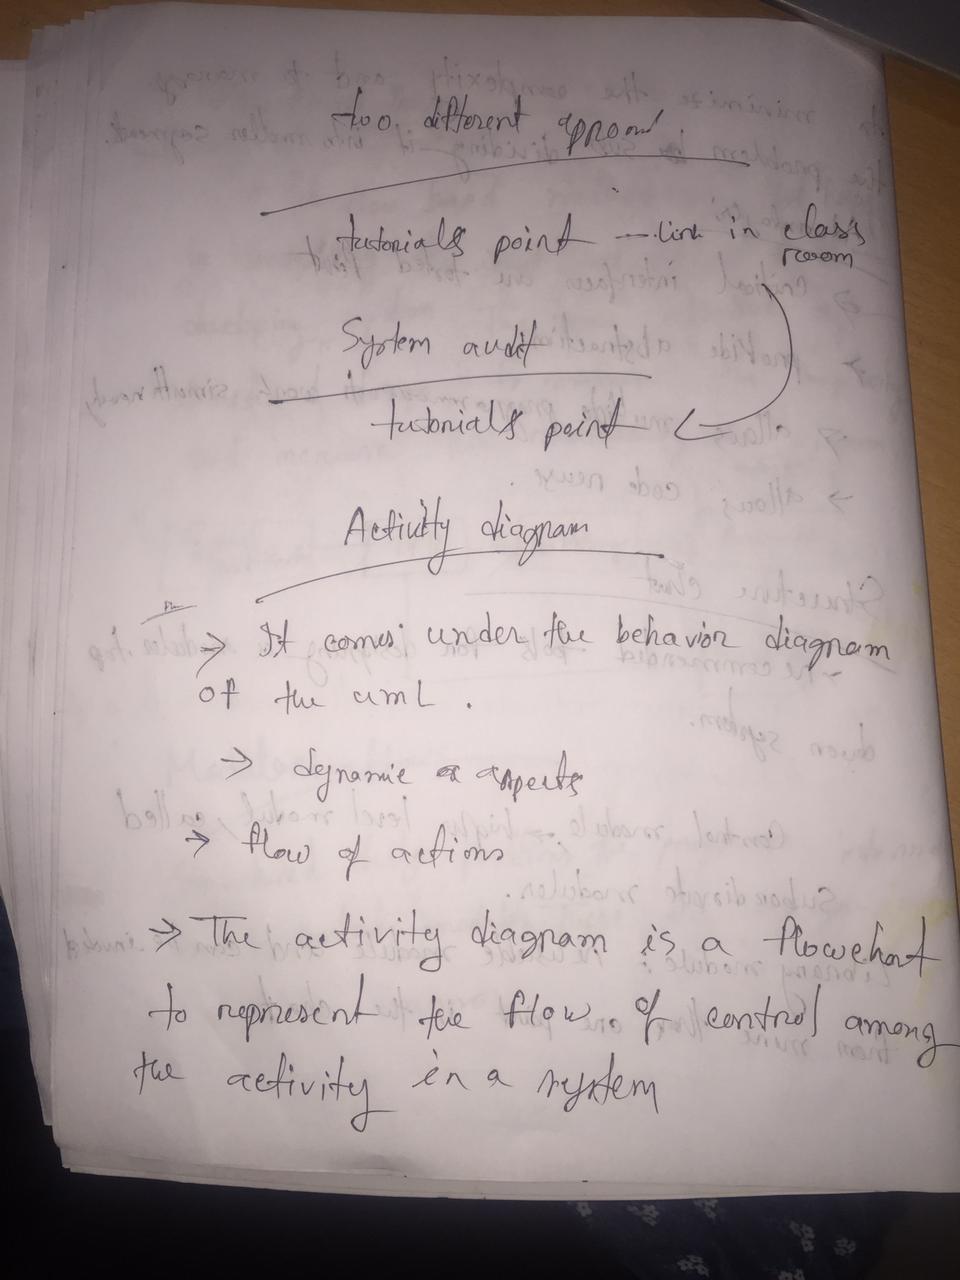 too different approach
tutorials point — link in class
room
System audit
tutorials point
Activity diagram
→ It comes under the behavior diagram
of the UML.
→ dynamic aspects
→ flow of actions
→ The activity diagram is a flowchart
to represent the flow of control among
the activity in a system